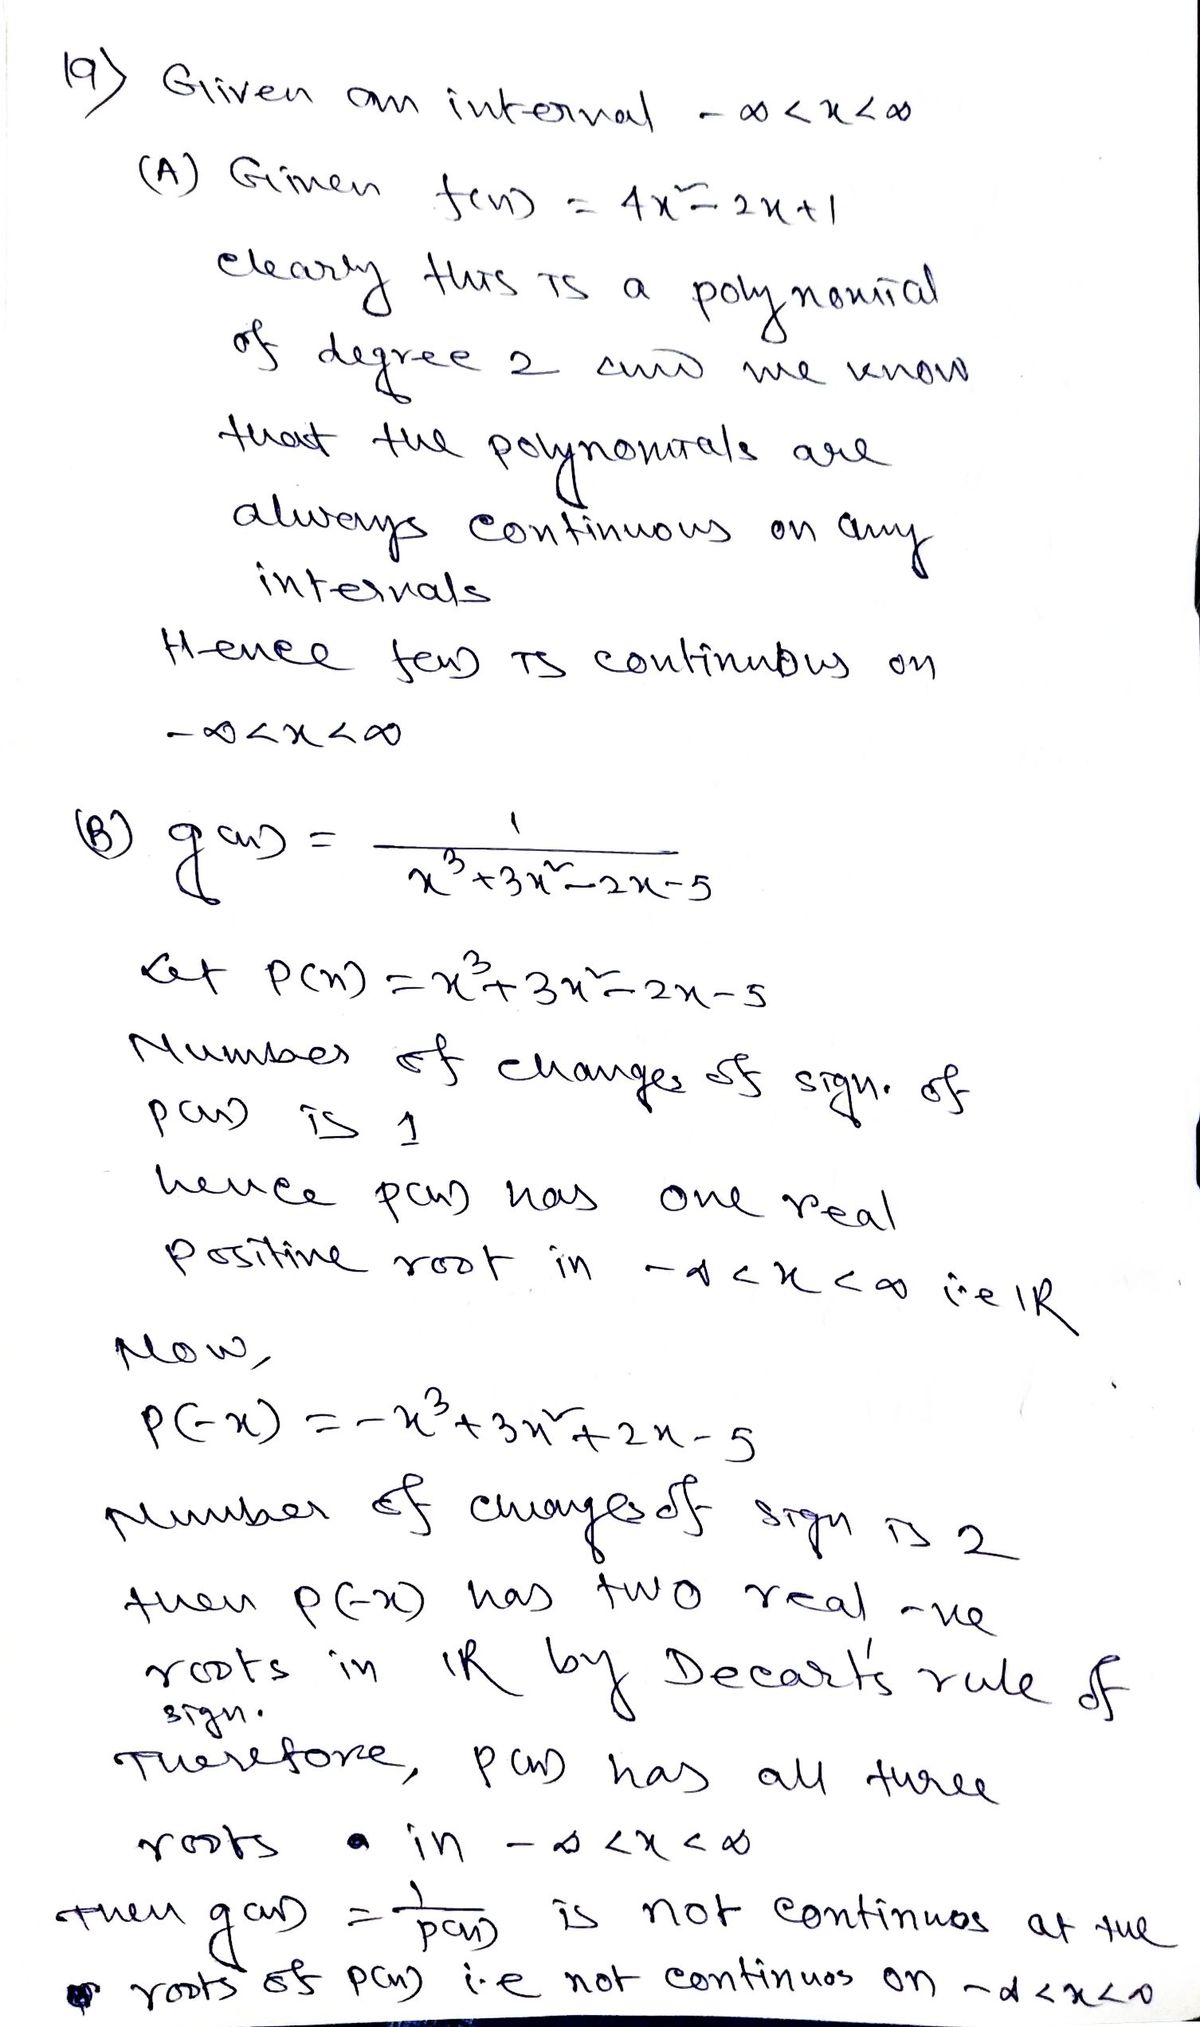 19) Given an interval -∞<x<∞
(A) Given f(x) = 4x²-2x+1
clearly this is a polynomial
of degree 2 and we know
that the polynomials are
always continuous on any
intervals
Hence f(x) is continuous on
-∞<x<∞
(B) g(x) = 1/(x³+3x²-2x-5)
Let p(x) = x³+3x²-2x-5
Number of changes of sign. of
p(x) is 1
hence p(x) has one real
positive root in -∞<x<∞ i.e ℝ
Now,
P(-x) = -x³+3x²+2x-5
Number of changes of sign is 2
then P(-x) has two real -ve
roots in ℝ by Decart's rule of
sign.
Therefore, p(x) has all three
roots in -∞<x<∞
Then g(x) = 1/p(x) is not continuos at the
roots of p(x) i.e not continuos on -∞<x<∞